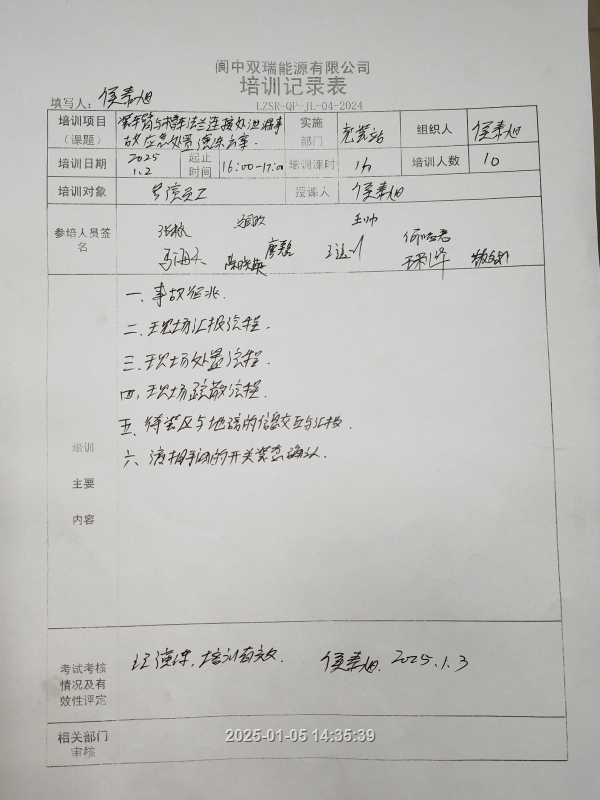 阆中双瑞能源有限公司
培训记录表
填写人：侯素旭 LZSR-QP-JL-04-2024
培训项目（课题） 装车臂与槽车法兰连接处泄漏事故应急处置演练方案 实施部门 充装站 组织人 侯素旭
培训日期 2025 1.2 起止时间 16:00-17:00 培训课时 1h 培训人数 10
培训对象 授课人 侯素旭
参培人员签名
王帅
一、事故征兆.
二、现场汇报流程.
三、现场处置流程.
四、现场疏散流程.
五、待装区与地磅的信息交互与汇报.
六、液相手阀的开关状态确认.
培训
主要
内容
考试考核情况及有效性评定 演练，培训有效. 侯素旭 2025.1.3
相关部门审核
2025-01-05 14:35:39